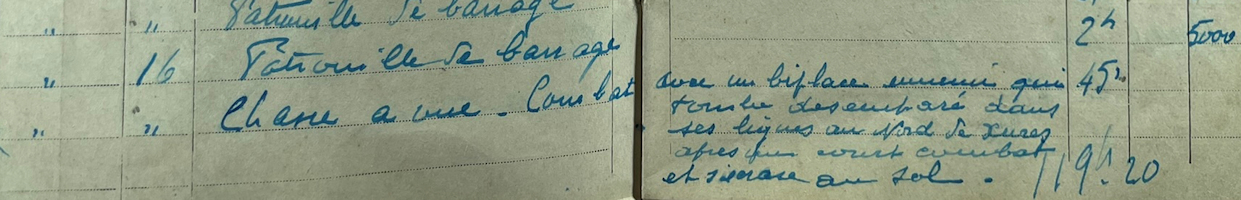 " " Patrouille de barrage 2h 5000
" 16 Patrouille de barrage
" " Chasse a vue. Combat avec un biplace ennemi qui 45m
tombe desemparé dans
ses lignes au Nord de Xures
après un court combat
et s'ecrase au sol. 19h.20